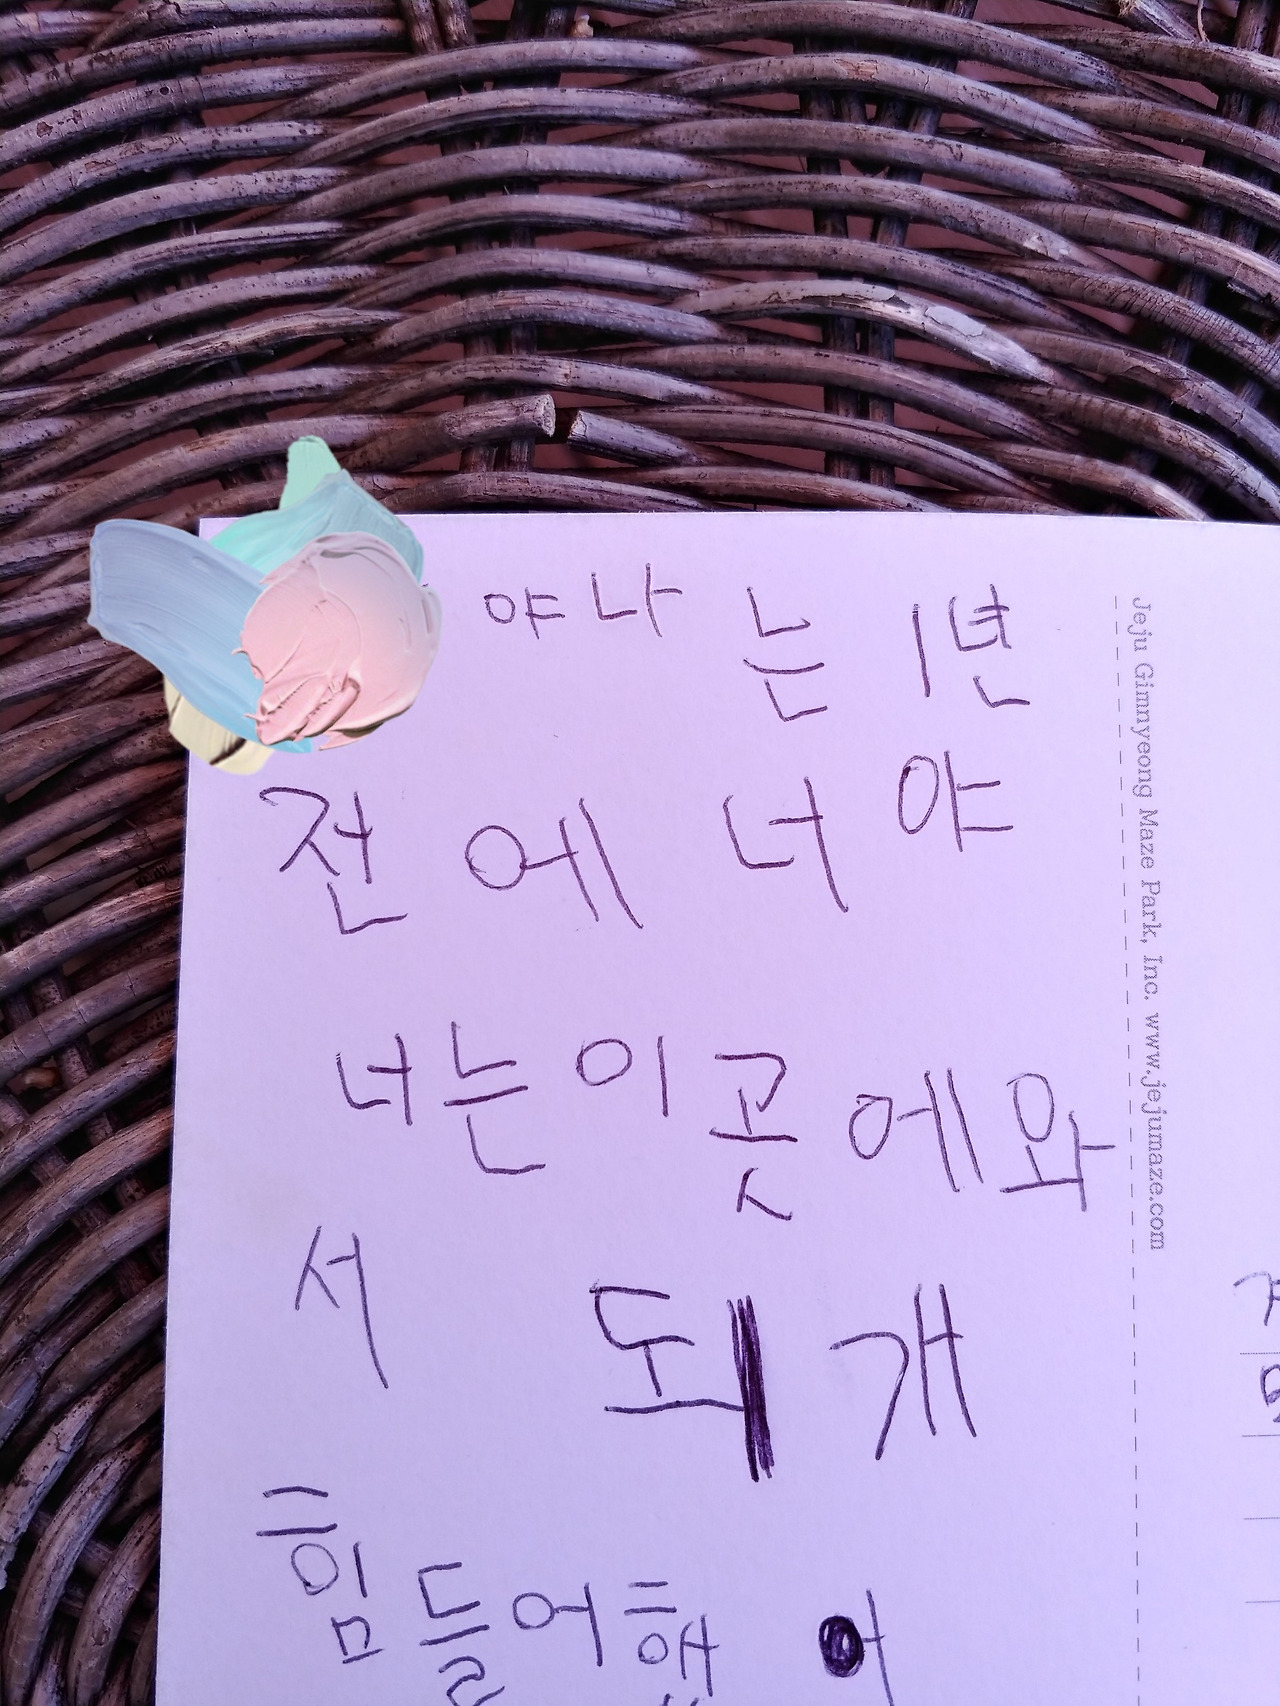 야 나는 1년
전에 너야
너는 이곳에와
서 되개
힘들어했어
Jeju Gimnyeong Maze Park, Inc. www.jejumaze.com